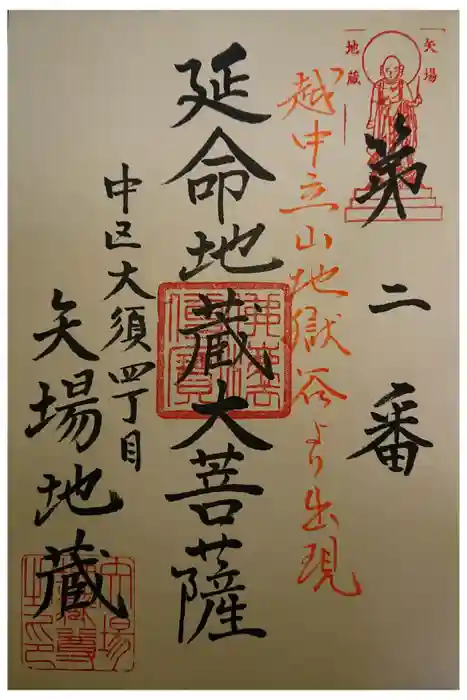 矢場
地蔵
第二番
越中立山地獄谷より出現
延命地蔵大菩薩
佛法僧寶
中区大須四丁目
矢場地蔵